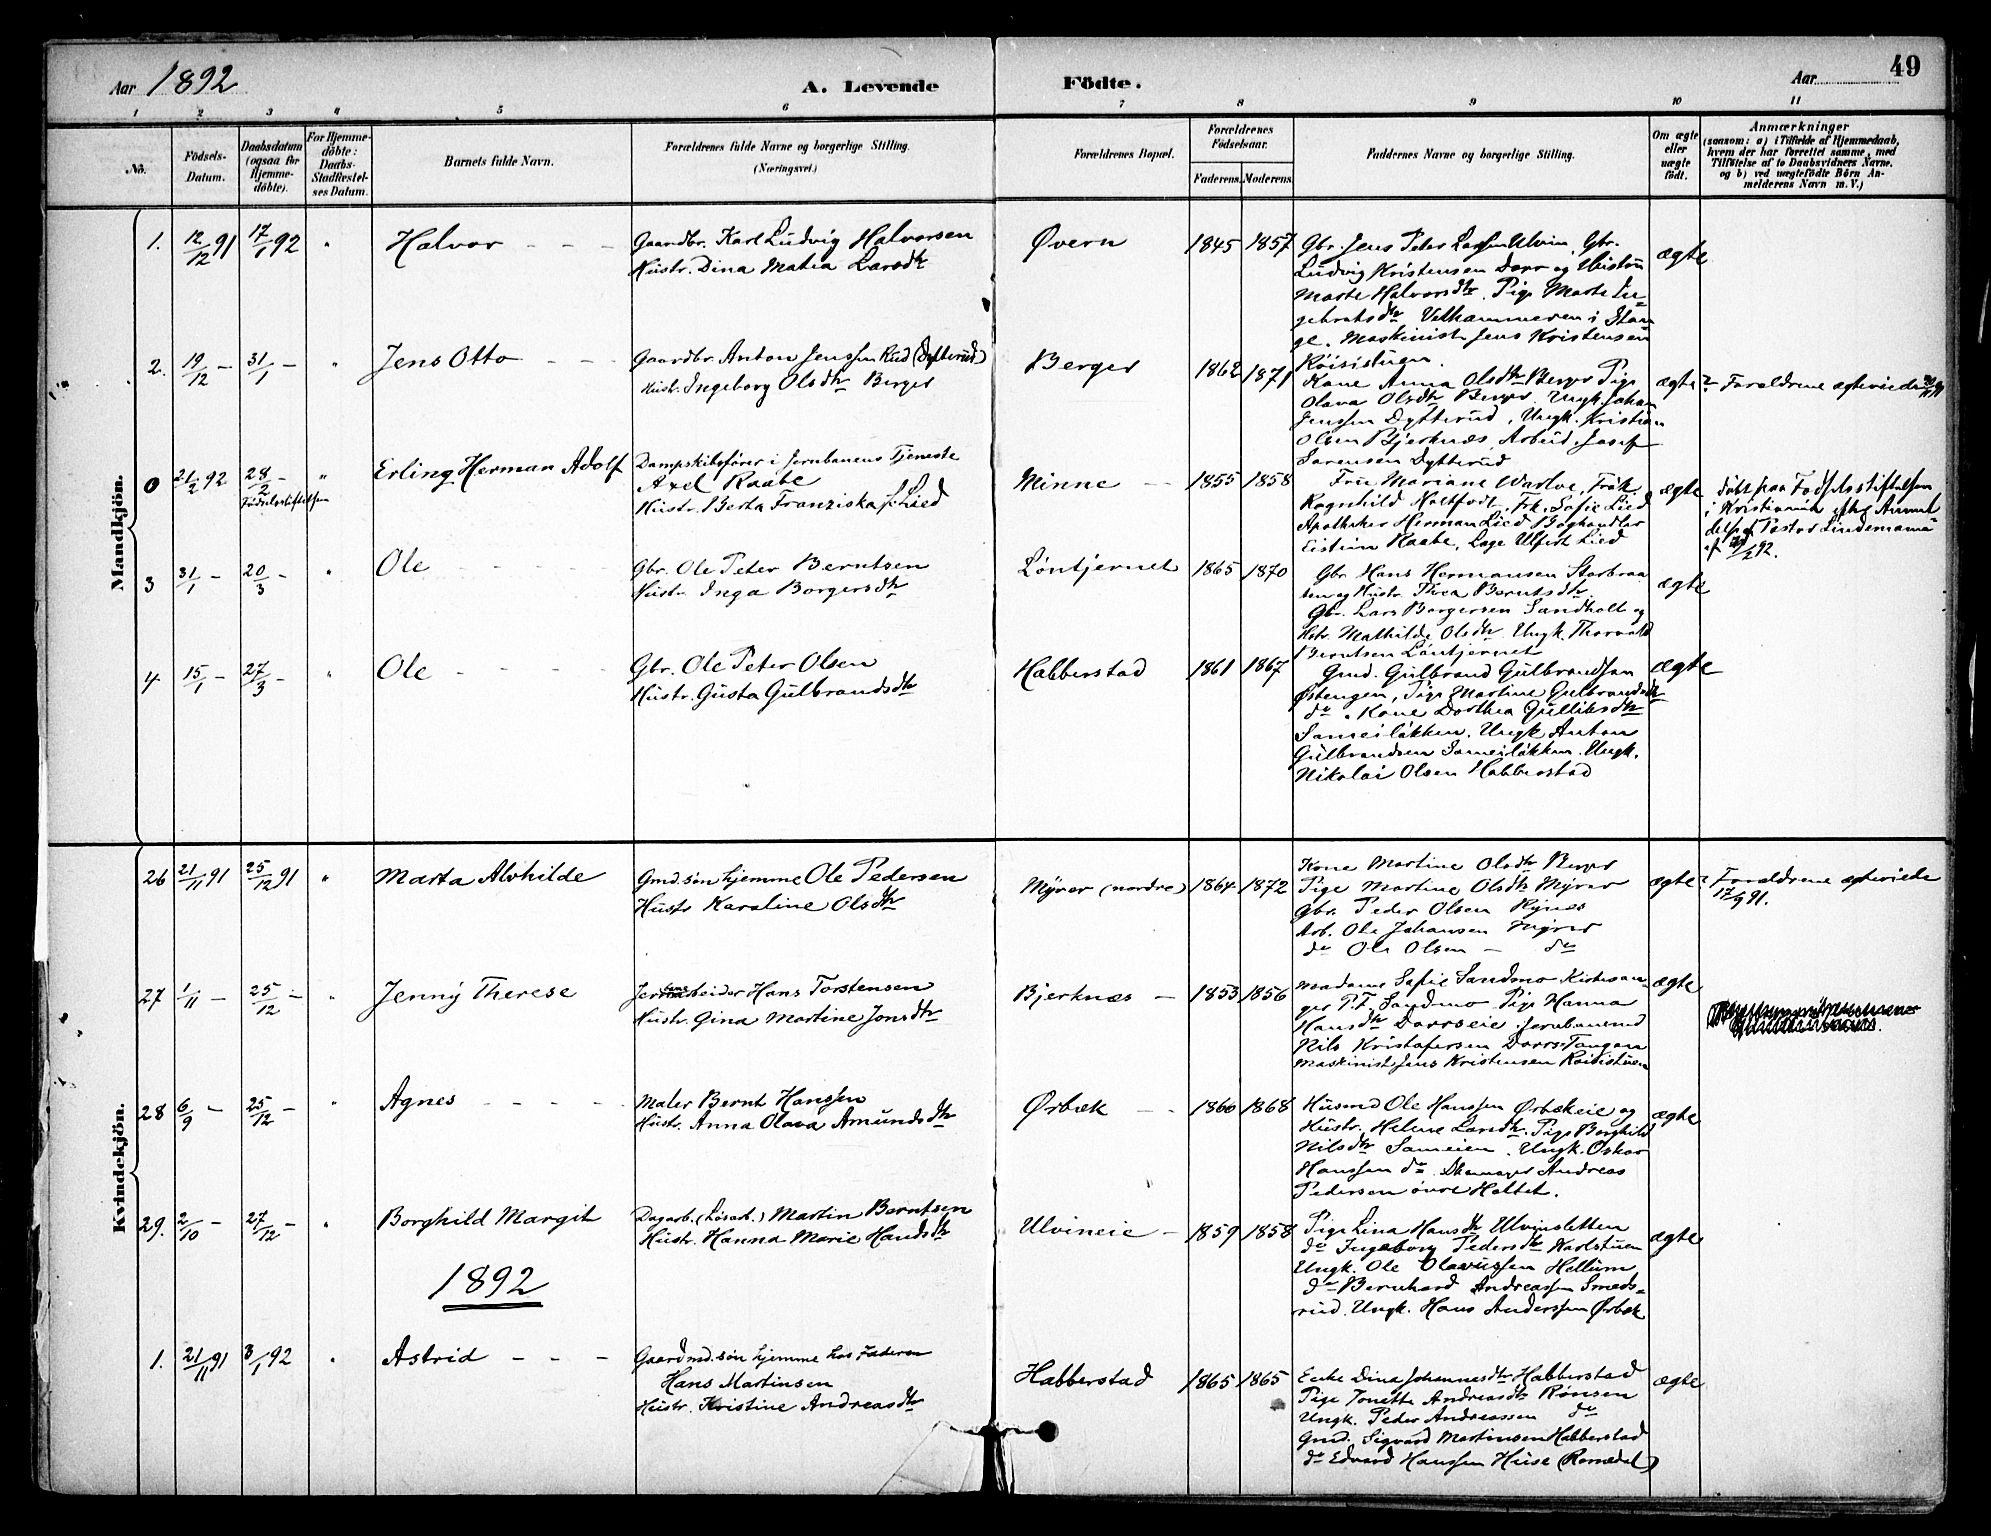 Aar 1892
A. Levende
Födte.
Aar
49
1 2 3 4 5 6 7 8 9 10 11
No.
Födsels-
Datum.
Daabsdatum
(ogsaa for
Hjemme-
döbte).
For Hjemme-
döbte:
Daabs-
Stadfæstel-
ses Datum.
Barnets fulde Navn.
Forældrenes fulde Navne og borgerlige Stilling.
(Næringsvei.)
Forældrenes Bopæl.
Forældrenes
Födselsaar.
Faderens. Moderens.
Faddernes Navne og borgerlige Stilling.
Om ægte
eller
uægte
födt.
Anmærkninger
(saasom: a) i Tilfælde af Hjemmedaab,
hvem der har forrettet samme, med
Tilföielse af to Daabsvidners Navne,
og b) ved uægtefödte Börn An-
melderens Navn m. V.)
Mandkjön.
1. 12/12 91 17/1 92 " Halvor
Gaardbr. Karl Ludvig Halvorsen
Hustr. Dina Matea Larsdtr
Øvern 1845 1857
Gbr. Jens Peter Larssen Ulvin, Gbr.
Ludvig Kristensen Dorr og Hustru
Marte Halvorsdtr. Pige Marte In-
gebretsdtr Velhammeren i Stan
ge. Maskinist Jens Kristensen
Röisistuen.
ægte
2. 19/12 - 31/1 - " Jens Otto
Gaardbr. Anton Jenssen Rud (Dytterud)
Hustr. Ingeborg Olsdtr Berger
Berger 1862 1871
Kone Anna Olsdtr Berger Pige
Olava Olsdtr Berger. Ungk. Johan
Jenssen Dytterud, Ungk. Kristian
Olsen Bjerknæs, Arbeid. Josef
Sørensen Dytterud
ægte
Forældrene ægteviede
0 21/2 92 28/2 - " Erling Herman Adolf
Födselsstiftelsen
Dampskibsfører i Jernbanens Tjeneste
Axel Raabe
Hustr. Berta Franziska f. Lied
Minne 1855 1858
Fru Mariane Warloe, Frøk.
Ragnhild Holtfodt, Frk. Sofie Lied
Apotheker Herman Lied Boghandler
Eistein Raabe, Læge Ulfert Lied
ægte
døbt paa Fødselsstiftelsen
i Kristiania efter Anmel
delse af Pastor Lindemann
3 31/1 - 20/3 - " Ole
Gbr. Ole Peter Berntsen
Hustr. Inga Borgersdtr
Løntjernet 1865 1870
Gbr. Hans Hermansen Storbraa
ten og Hustr. Thea Berntsdtr.
Gbr. Lars Borgersen Sandholt og
Hstr. Mathilde Olsdtr. Ungk. Thorvald
Berntsen Løntjernet
ægte
4 15/1 - 27/3 - " Ole
Gbr. Ole Peter Olsen
Hustr. Gusta Gulbrandsdtr
Habberstad 1861 1867
Gmd. Gulbrand Gulbrandsen
Østengen, Pige Martine Gulbrandsdtr
do. Kone Dorthea Gulliksdtr
Sameiløkken. Ungk Anton
Gulbrandsen Sameiløkken. Ungk.
Nikolai Olsen Habberstad
ægte
Kvindekjön.
26 21/11 91 25/12 91 " Marta Alvhilde
Gmd.søn hjemme Ole Pedersen
Hustr Karoline Olsdtr
Myrer (nordre) 1864 1872
Kone Martine Olsdtr Berger
Pige Martine Olsdtr Myrer
Gbr. Peder Olsen Rynes
Arb. Ole Johansen Myrer
do Ole Olsen - do
ægte
Forældrene ægteviede
17/9 91.
27 1/11 - 25/12 - " Jenny Therese
Jernbarbeider Hans Torstensen
Hustr. Gina Martine Jonsdtr
Bjerknæs 1853 1856
Madame Sofie Sandmo Kirkesan-
ger P.F. Sandmo Pige Hanna
Hansdtr Dorrseie. Jernbanemd
Nils Kristofersen Dorrs-Tangen
Maskinist Jens Kristensen Röisistuen
ægte
28 6/9 - 25/12 - " Agnes
Maler Bernt Hanssen
Hustr. Anna Olava Amundsdtr
Ørbæk 1860 1868
Husmd Ole Hanssen Ørbækeie og
Hustr. Helene Larsdtr. Pige Borghild
Nilsdtr Sameien. Ungk. Oskar
Hanssen do. Skomager Andreas
Pedersen øvre Holtet.
ægte
29. 2/10 - 27/12 - " Borghild Margit
Dagarb. (Løsarb.) Martin Berntsen
Hustr. Hanna Marie Hansdtr
Ulvineie 1859 1858
Pige Lina Hansdtr Ulvinsletten
do Ingeborg Pedersdtr Karlstuen
Ungk. Ole Olavussen Hellum
do Bernhard Andreassen Smeds-
rud. Ungk. Hans Anderssen Ørbæk
ægte
1892
1. 21/11 91 3/1 92 " Astrid
Gaardmd.søn hjemme hos Faderen
Hans Martinsen
Hustr. Kristine Andreasdtr
Habberstad 1865 1865
Enke Dina Johannesdtr Habberstad
Pige Jonette Andreasdtr Rønsen
Ungk. Peder Andreassen do
Gmd. Sigvard Martinsen Habberstad
do Edvard Hanssen Huse (Romedal)
ægte